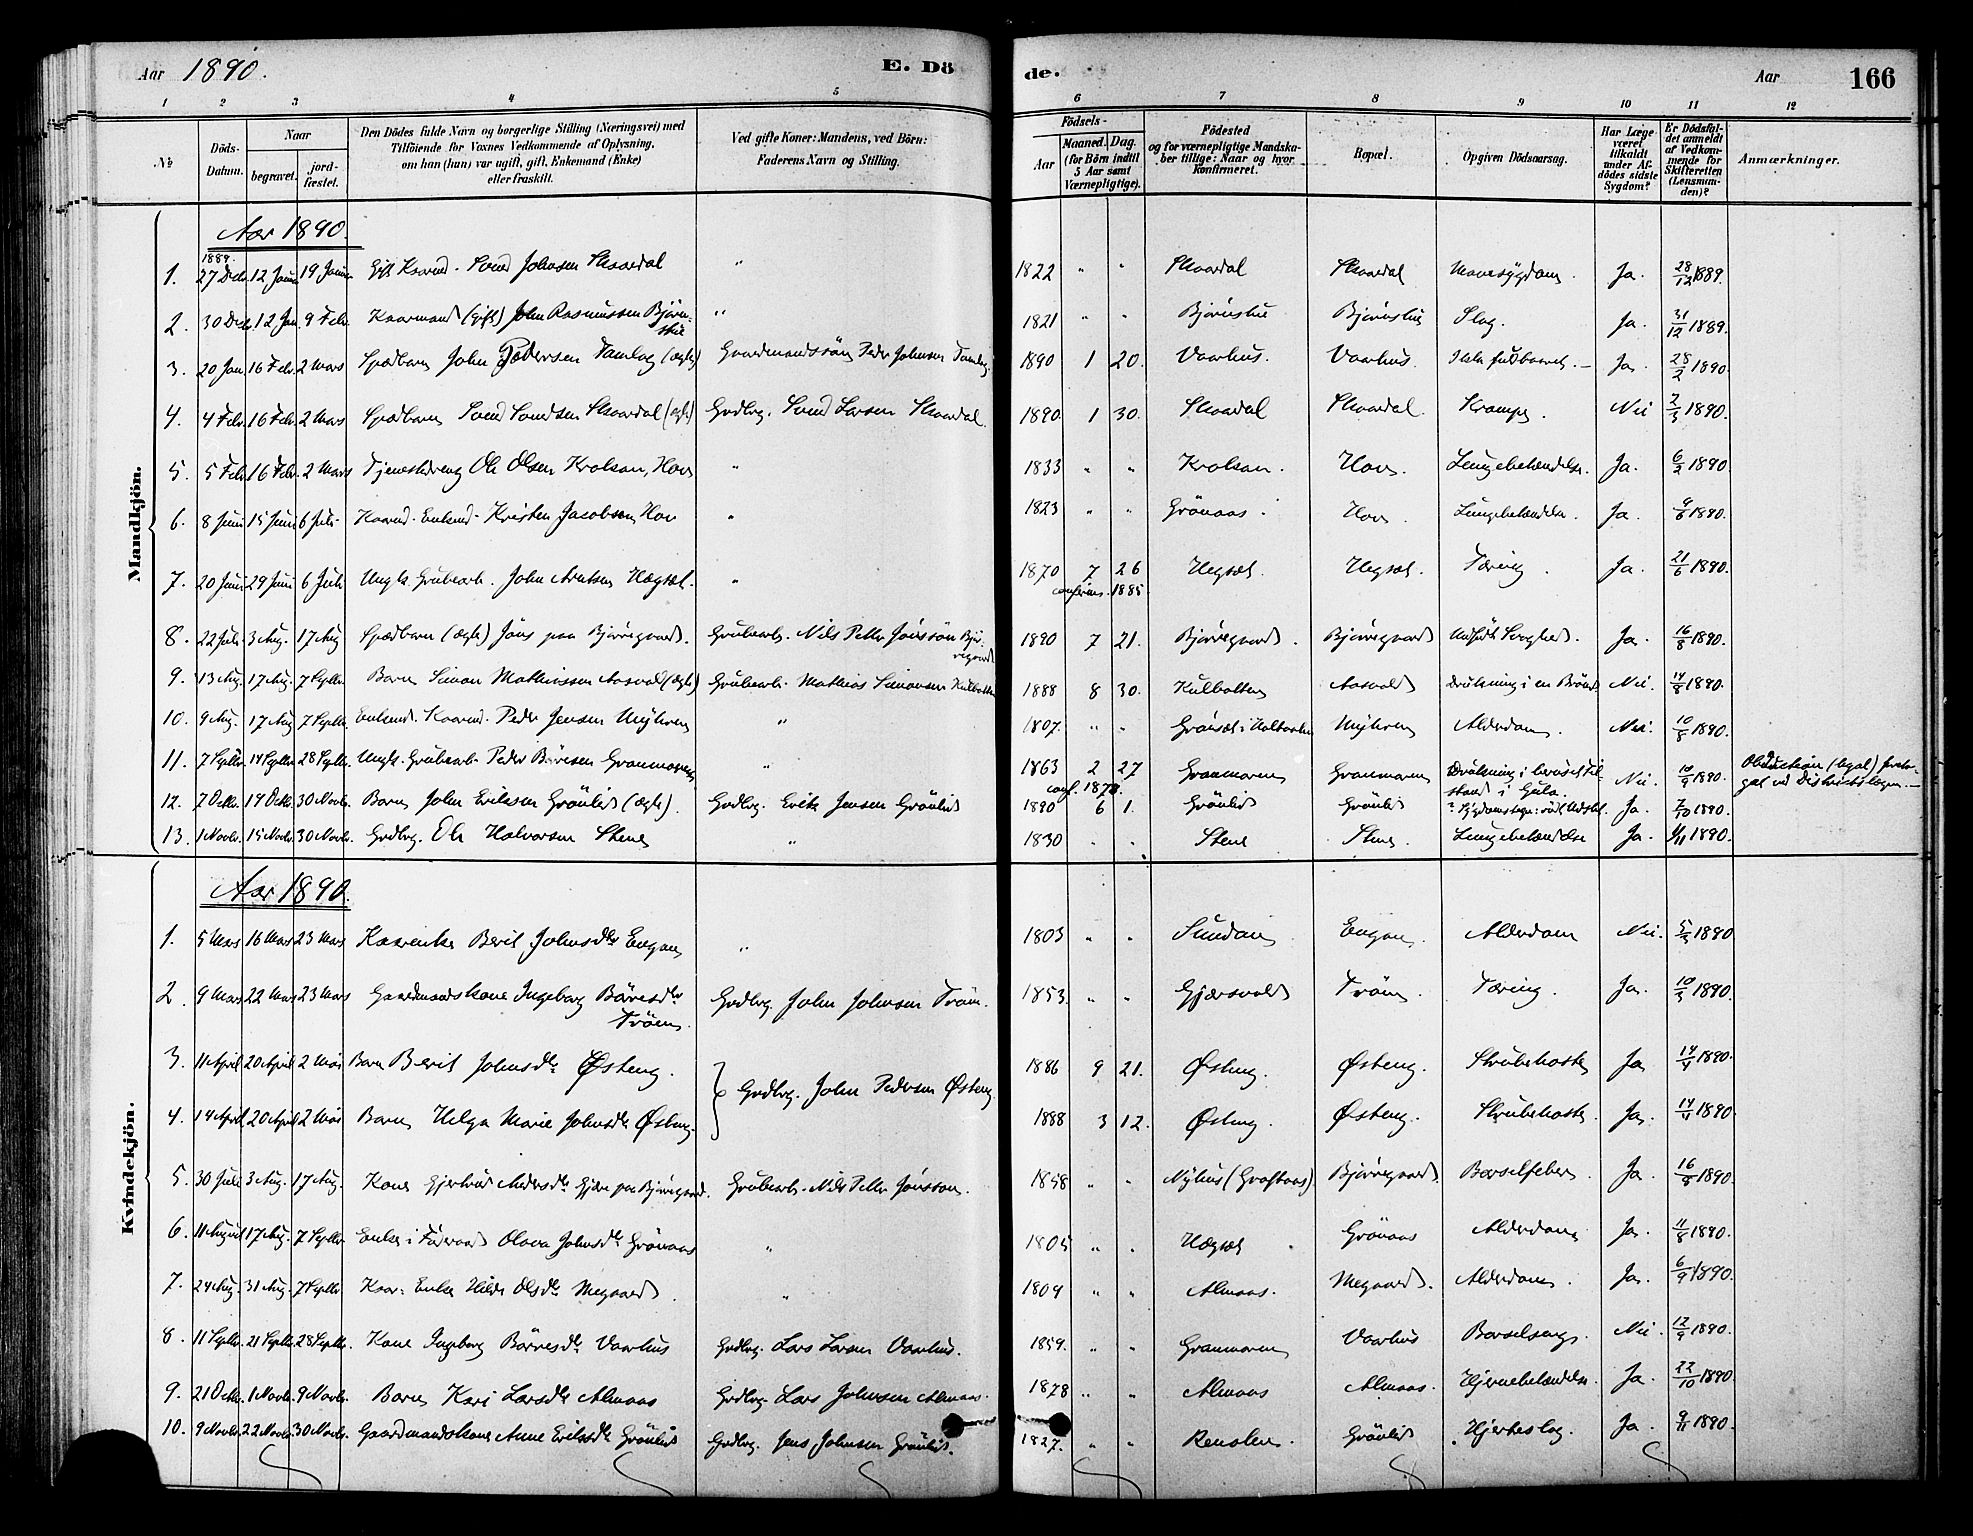 Aar 1890. E. Dö
de. Aar 166
1 2 3 4 5 6 7 8 9 10 11 12
№
Döds-Datum.
Naar
begravet. jordfæstet.
Den Dödes fulde Navn og borgerlige Stilling (Næringsvei) med
Tilföiende for Voxnes Vedkommende af Oplysning,
om han (hun) var ugift, gift, Enkemand (Enke)
eller fraskilt.
Ved gifte Koner: Mandens, ved Börn:
Faderens Navn og Stilling.
Födsels-
Aar Maaned. Dag.
(for Börn indtil
5 Aar samt
Værnepligtige).
Födested
og for værnepligtige Mandskaber tillige: Naar og hvor
Konfirmeret.
Bopæl.
Opgiven Dödsaarsag.
Har Læge
været
tilkaldt
under Afdödes sidste
Sygdom?
Er Dödsfaldet anmeldt
af Vedkommende for
Skifteretten
(Lensmanden)?
Anmærkninger.
Mandkjön.
Aar 1890.
1889.
1. 27 Decbr. 12 Janu. 19 Janu. Gift Kaarmd. Svend Johnsen Skaardal " 1822 " " Skaardal Skaardal Mavesygdom. Ja. 28/12 1889.
2. 30 Decbr. 12 Jan. 9 Febr. Kaarmand (gift) John Rasmussen Bjørnstue " 1821 " " Bjørnstue Bjørnstue Slag. Ja. 31/12 1889.
3. 20 Jan. 16 Febr. 2 Mars Spædbarn John Pedersen Tamlag (ægte) Gaardmandssøn Peder Johnsen Tamlag 1890 1 20. Vaarhus. Vaarhus. Ikke fuldbaaret. Ja. 28/2 1890.
4. 4 Febr. 16 Febr. 2 Mars Spædbarn Svend Svendsen Skaardal (ægte) Grdbrg. Svend Larsen Skaardal. 1890. 1 30. Skaardal Skaardal. Krampe. Nei 2/3 1890.
5 5 Febr. 16 Febr. 2 Mars Tjenestedreng Ole Olsen Krokan, Hov " 1833 " " Krokan. Hov. Lungebetændelse. Ja. 6/2 1890.
6. 8 Juni 15 Juni 6 Juli Kaarmd. Enkemd. Kristen Jacobsen Hov " 1823 " " Grönaas. Hov. Lungebetændelse. Ja. 9/6 1890.
7. 20 Juni 29 Juni 6 Juli Ungk. Grubearb. John Arntsen Hægset. " 1870 7 26 Hegset. Hegset. Tæring. Ja. 21/6 1890.
confirm. 1885.
8. 22 Juli 3 Aug. 17 Aug Spædbarn (ægte) Jöns paa Bjørregaard. Grubearb. Nils Petter Jönsson Bjørregaard 1890 7 21. Bjørregaard. Bjørregaard Medfødt Svaghed. Ja. 16/8 1890.
9. 13 Aug. 17 Aug. 7 Septbr. Barn Simon Mathiassen Aasvold (ægte) Grubearb. Mathias Simonsen Kulbotten 1888 8 30. Kulbotten Aasvold Drukning i en Brønd Nei. 14/8 1890.
10. 9 Aug. 17 Aug 7 Septbr. Enkemd. Kaarmd. Peder Jensen Myhren " 1807. " " Grönset i Holtaalen Myhren Alderdom. Nei. 10/8 1890.
11. 7 Septbr. 14 Septbr. 28 Septbr. Ungk. Grubearb. Peder Börresen Granmoren " 1863 2 27 Granmoren Granmoren Drukning i beruset Tilstand i Gula. Nei. 10/9 1890. Obduction (legal) foretaget ved Distriktslægen.
conf. 1878.
12. 7 Octbr. 19 Octbr. 30 Novbr. Barn John Eriksen Grönlid (ægte). Grdbrg. Erik Jensen Grönlid 1890 6 1. Grönlid Grönlid Ja. 7/10 1890.
13. 1 Novbr. 15 Novbr. 30 Novbr. Grdbrg. Ole Halvorsen Stene " 1830 " " Stene Stene. Lungebetændelse Ja. 1/11 1890.
Kvindekjön.
Aar 1890.
1. 5 Mars 16 Mars 23 Mars Kaarenke Berit Johnsdtr Engan " 1803 " " Engan. Alderdom Nei. 5/3 1890
2. 9 Mars 22 Mars 23 Mars Gaardmandskone Ingeborg Börresdtr Tröen. Grdbrg. John Johnsen Tröen. 1853. " " Gjærsvold Tröen. Tæring. Ja. 10/3 1890.
3. 11 April 20 April 2 Mai Barn Berit Johnsdtr Østeng. Grdbrg. John Pedersen Østeng 1886 9 21. Østeng. Østeng. Strubehoste Ja 14/4 1890.
4. 14 April 20 April 2 Mai Barn Helga Marie Johnsdtr Østeng. 1888 3 12. Østeng. Østeng. Strubehoste. Ja. 14/4 1890
5. 30 Juli 3 Aug. 17 Aug. Kone Gjertrud Andersdtr paa Bjørregaard. Grubearb. Nils Petter Jönsson. 1858 " " Nyhus (Graftaas) Bjørregaard. Barselfeber. Ja. 16/8 1890.
6. 11 August 17 Aug. 7 Septbr Enke i Føderaad Olava Johnsdtr Grönaas " 1805 " " Hægset Grönaas Alderdom Ja. 11/8 1890.
7. 24 Aug. 31 Aug. 7 Septbr Kaar-Enke Hilde Olsdtr Megaard. " 1809 " " Almaas. Megaard. Alderdom. Ja. 6/9 1890.
8. 11 Septbr. 21 Septbr. 28 Septbr. Kone Ingeborg Börresdtr Vaarhus Grdbrg. Lars Larsen Vaarhus. 1859. " " Granmoren Vaarhus Barselseng. Nei. 12/9 1890.
9. 21 Octbr. 1 Novbr. 9 Novbr. Barn Kari Larsdtr Almaas Grdbrg. Lars Johnsen Almaas. 1878 " " Almaas Almaas. Hjernebetændelse. Ja. 22/10 1890
10. 9 Novbr. 22 Novbr. 30 Novbr. Gaardmandskone Anne Eriksdtr Grönlid Grdbrg. Jens Johnsen Grönlid. 1827. " " Renolen. Grönlid Hjerteslag. Ja. 9/11 1890.